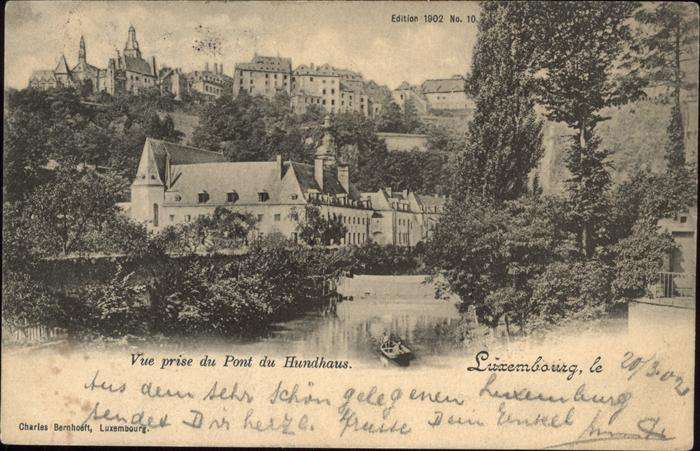 Edition 1902 No. 10.
Vue prise du Pont du Hundhaus.
Luxembourg, le 20/3.02.
Aus dem sehr schön gelegenen Luxemburg
sendet Dir herzl. Grüsse Dein Enkel
Charles Bernhoeft, Luxembourg.